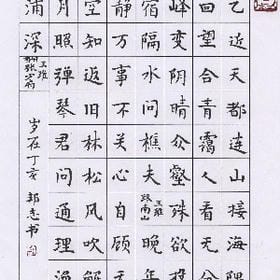 乙近天都连山接海隅
回望合青霭入看无分
峰变阴晴众壑殊欲投
宿隔水问樵夫王维终南山晚年
静万事不关心自顾无
空知返旧林松风吹解
月照弹琴君问通理渔
浦深王维酬张少府
岁在丁亥 志书